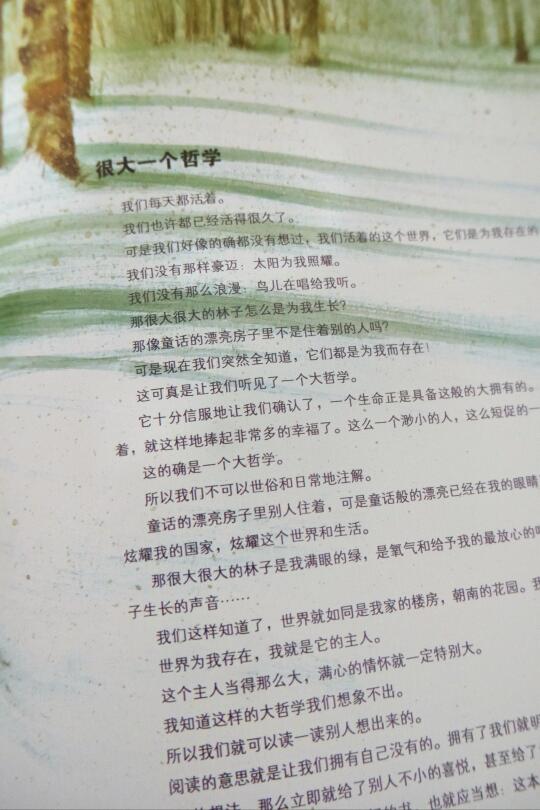 很大一个哲学
我们每天都活着。
我们也许都已经活得很久了。
可是我们好像的确都没有想过，我们活着的这个世界，它们是为我存在的
我们没有那样豪迈：太阳为我照耀。
我们没有那么浪漫：鸟儿在唱给我听。
那很大很大的林子怎么是为我生长？
那像童话的漂亮房子里不是住着别的人吗？
可是现在我们突然全知道，它们都是为我而存在！
这可真是让我们听见了一个大哲学。
它十分信服地让我们确认了，一个生命正是具备这般的大拥有的。
着，就这样地捧起非常多的幸福了。这么一个渺小的人，这么短促的一
这的确是一个大哲学。
所以我们不可以世俗和日常地注解。
童话的漂亮房子里别人住着，可是童话般的漂亮已经在我的眼睛
炫耀我的国家，炫耀这个世界和生活。
那很大很大的林子是我满眼的绿，是氧气和给予我的最放心的呼
子生长的声音……
我们这样知道了，世界就如同是我家的楼房，朝南的花园。我
世界为我存在，我就是它的主人。
这个主人当得那么大，满心的情怀就一定特别大。
我知道这样的大哲学我们想象不出。
所以我们就可以读一读别人想出来的。
阅读的意思就是让我们拥有自己没有的。拥有了我们就明
的想法，那么立即就给了别人不小的喜悦，甚至给了
的书，也就应当想：这本